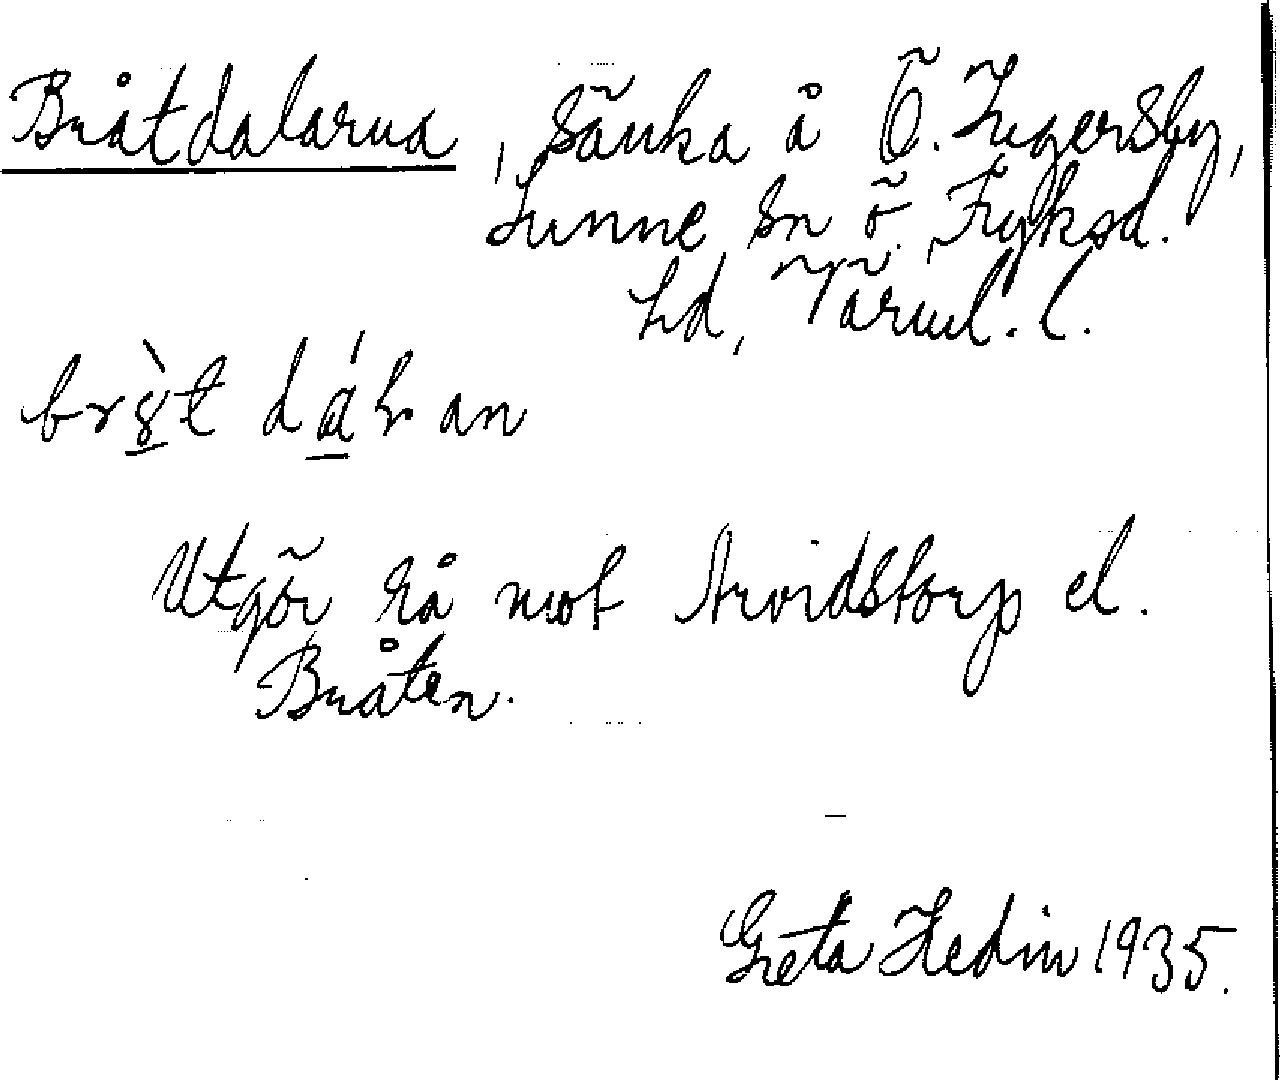 Bråtdalarna, sänka å Ö. Ingersby,
Sunne sn Ö. Fryksd.
hd, Värml. l.
bråt dalan
Utgör rå mot Arvidstorp el.
Bråten.
Greta Hedin 1935.